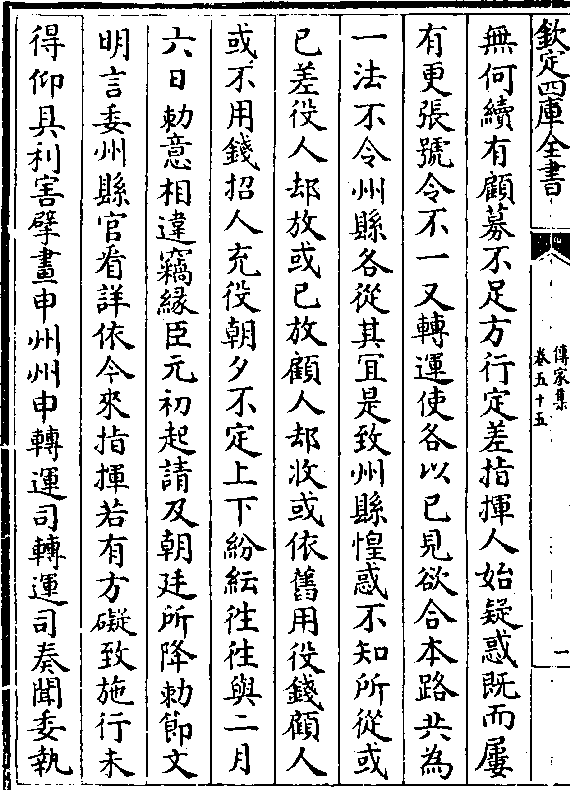 欽定四庫全書
傳家集
卷五十五
一
無何續有顧募不足方行定差指揮人始疑惑既而屢
有更張號令不一又轉運使各以已見欲合本路共為
一法不令州縣各從其宜是致州縣惶惑不知所從或
已差役人却放或已放顧人却收或依舊用役錢顧人
或不用錢招人充役朝夕不定上下紛紜徃徃與二月
六日勅意相違竊縁臣元初起請及朝廷所降勅節文
明言委州縣官看詳依今來指揮若有方礙致施行未
得仰具利害擘畫申州州申轉運司轉運司奏聞委執